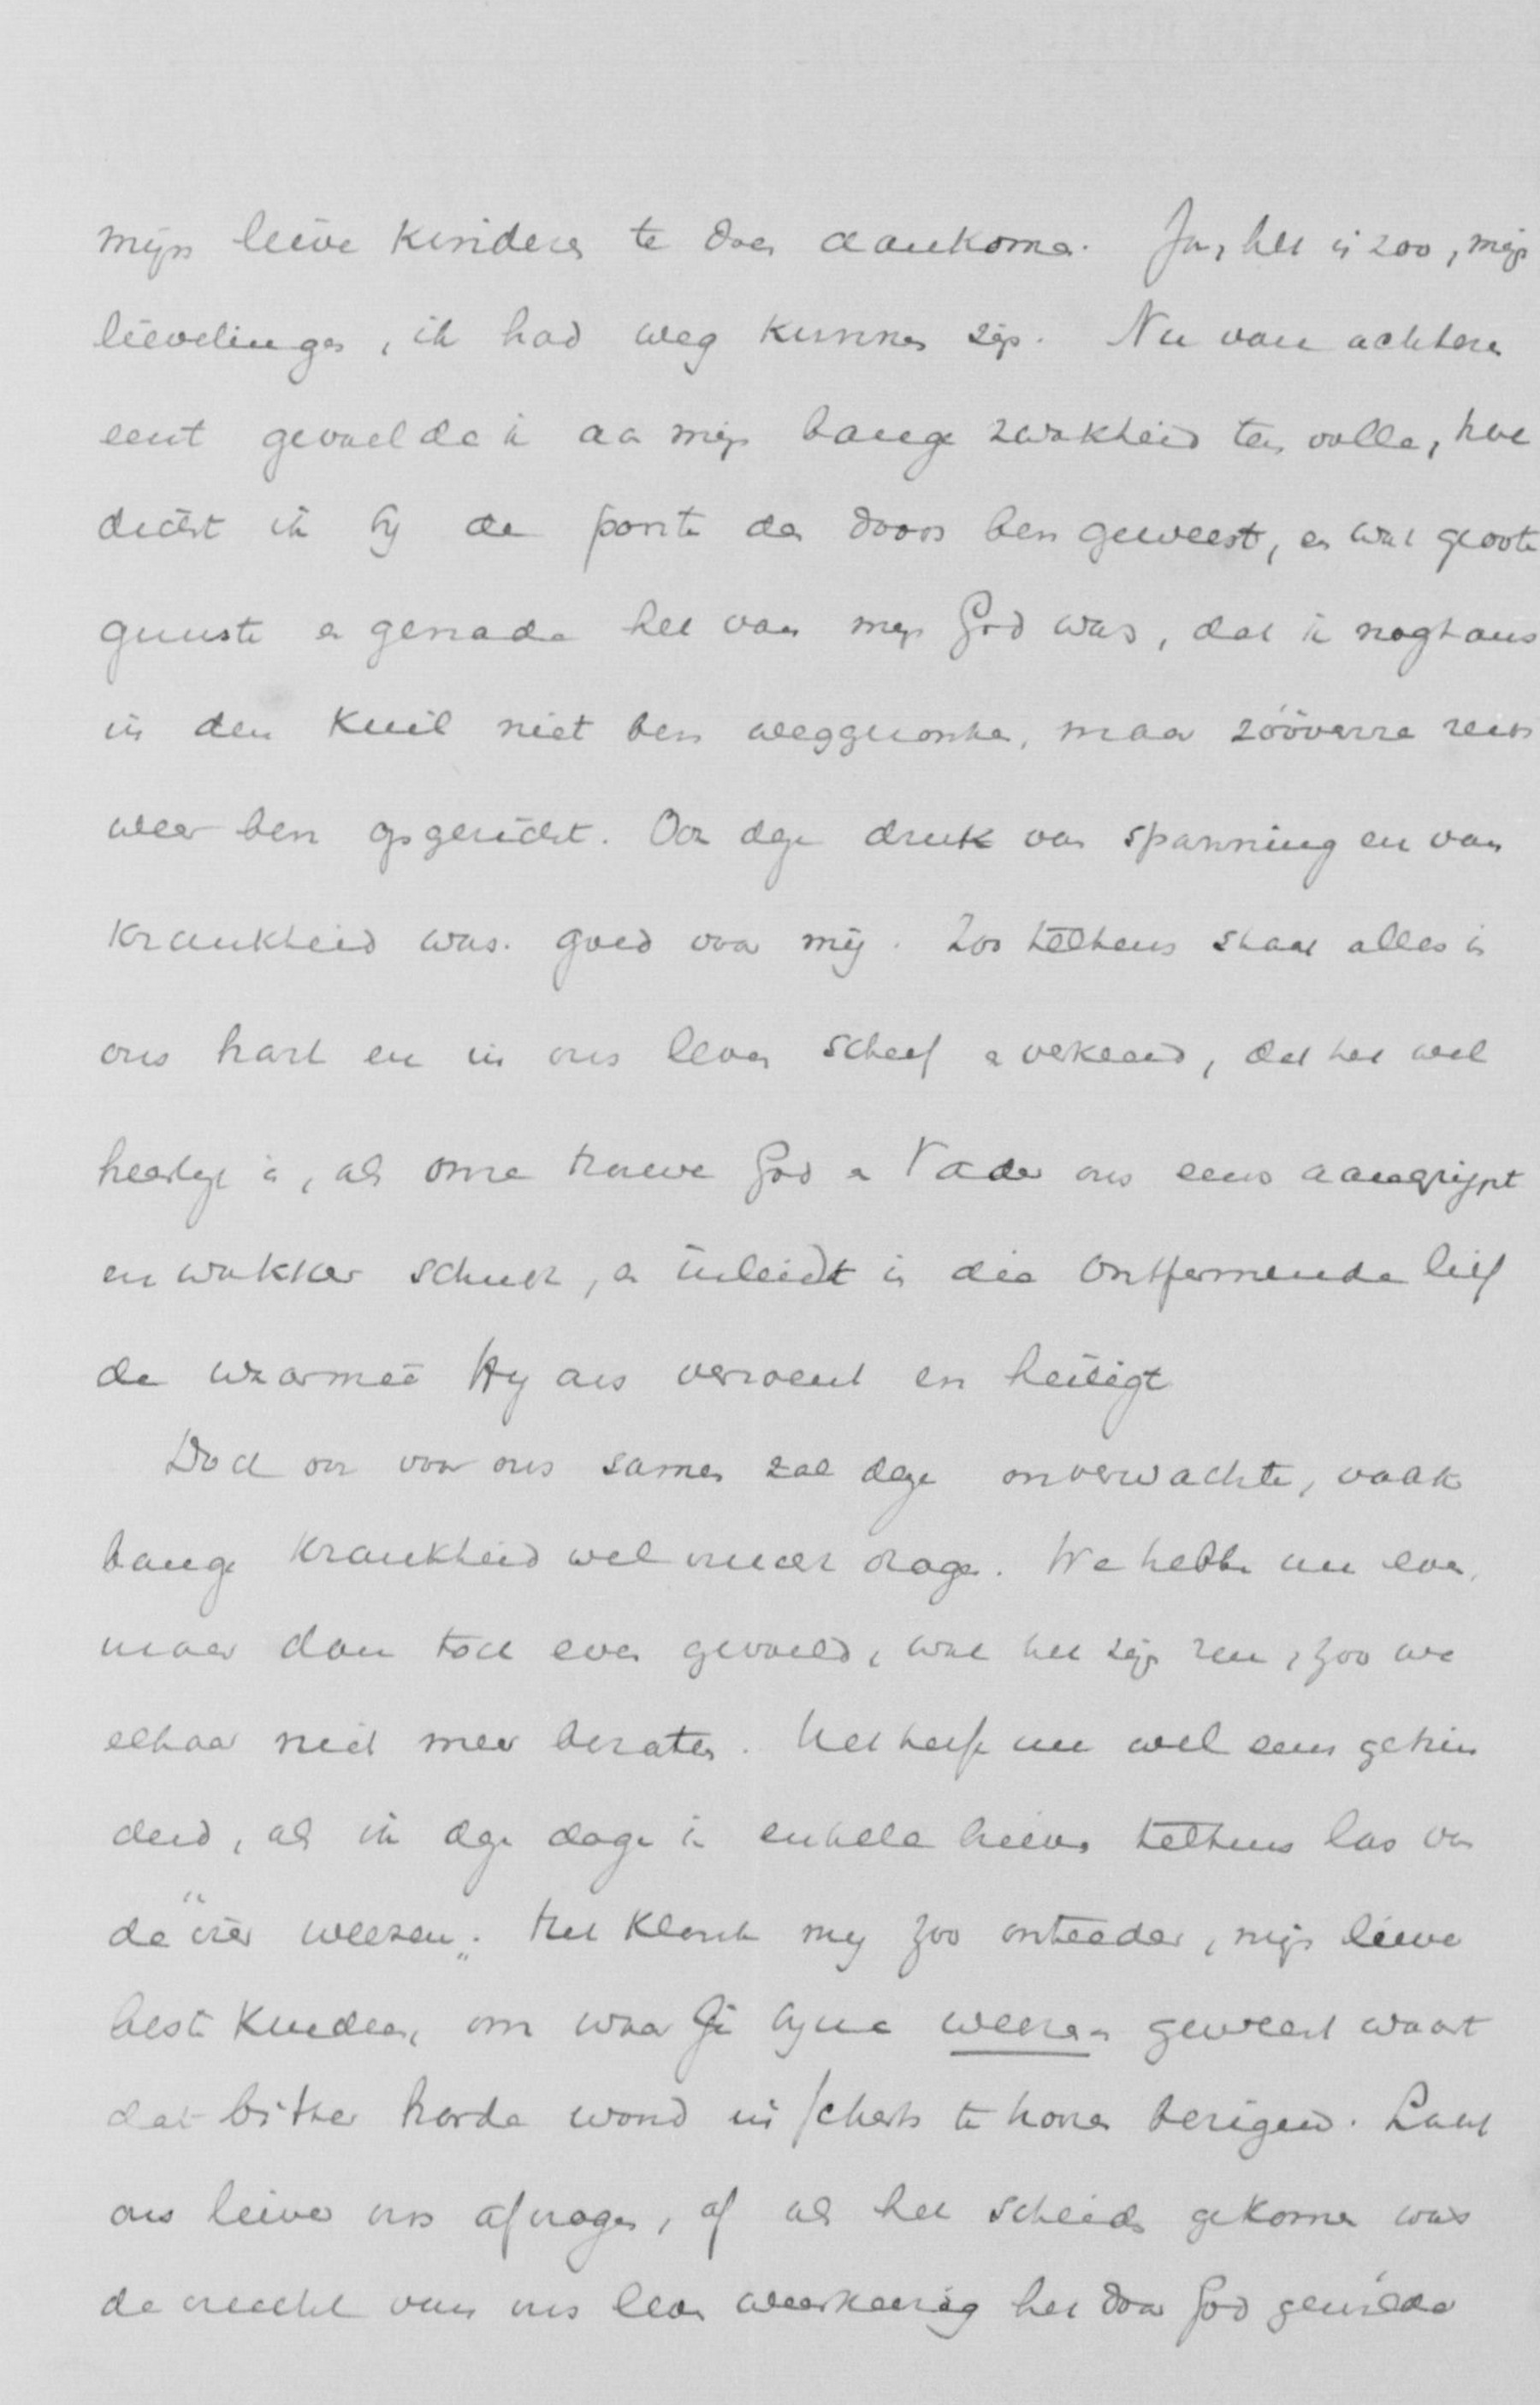 mijn lieve kinderen te doen aankomen. Ja, het is zoo, mijn
lievelingen, ik had weg kunnen zijn. Nu van achteren
eerst gevoelde ik aan mijn bange zwakheid ten volle, hoe
dicht ik bij de poorte des doods ben geweest, en wat groote
gunste en genade het van mijn God was, dat ik nogtans
in den kuil niet ben weggezonken, maar zóóverre reeds
weer ben opgericht. Ook deze druk van spanning en van
krankheid was goed voor mij. Zoo telkens staat alles in
ons hart en in ons leven scheef en verkeerd, dat het wel
heerlijk is, als onze trouwe God en Vader ons eens aangrijpt
en wakker schudt, en inleidt in die ontfermende lief
de waarmeê Hij ons verzoent en heiligt
Doch ook voor ons samen zal deze onverwachte, vaak
bange krankheid wel vrucht dragen. We hebben nu even,
maar dan toch even gevoeld, wat het zijn zou, zoo we
elkaar niet meer bezaten. Het heeft me wel eens gehin
derd, als ik deze dagen in enkele brieven telkens las van
de "vier weezen". Het klonk mij zoo onteeder, mijn lieve
beste kinderen, om waar Gij bijna weezen geweest waart
dat bitter harde woord in scherts te hooren bezigen. Laat
ons liever ons afvragen, of als het scheiden gekomen was
de vrucht van ons leven wederkeerig het door God gewilde